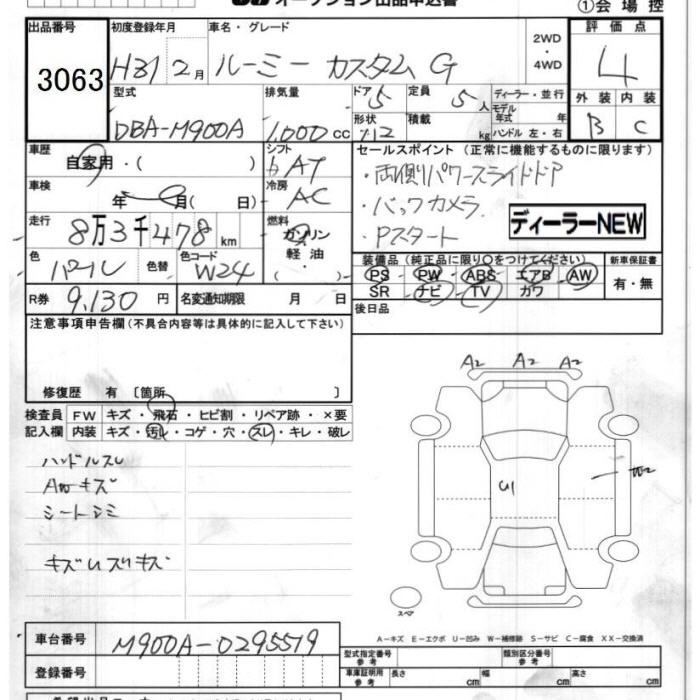 オークション出品申込書
①会場控
出品番号 初度登録年月 車名・グレード 2WD・4WD 評価点
3063 H31 2月 ルーミー カスタムG 4
型式 排気量 ドア 5 定員 5人 ディーラー・並行 外装 内装
DBA-M900A 1,000cc 形状 積載 kg モデル年式 年 ハンドル 左・右 B C
車歴 自家用・( ) シフト AT セールスポイント (正常に機能するものに限ります)
・両側パワースライドドア
車検 年 月( 日) 冷房 AC ・バックカメラ
走行 8万3千478km 燃料 ガソリン・軽油・ ディーラーNEW
・Pスタート
色 パール 色替 色コード W24 装備品 (純正品に限り○をつけてください) 新車保証書
PS PW ABS エアB AW 有・無
SR ナビ TV カワ
R券 9,130円 名変通知期限 月 日 後日品
注意事項申告欄(不具合内容等は具体的に記入して下さい)
修復歴 有〔箇所 〕
検査員 FW キズ・飛石・ヒビ割・リペア跡・×要
記入欄 内装 キズ・汚れ・コゲ・穴・スレ・キレ・破レ
ハンドルスレ
AWキズ
シートシミ
キズUズリキズ
A2 A2 A2
U1
W2
スペア
A-キズ E-エクボ U-凹み W-補修跡 S-サビ C-腐食 XX-交換済
車台番号 M900A-0295519
登録番号
型式指定番号 参考 類別区分番号 参考
車庫証明用 参考 長さ cm 幅 cm 高さ cm